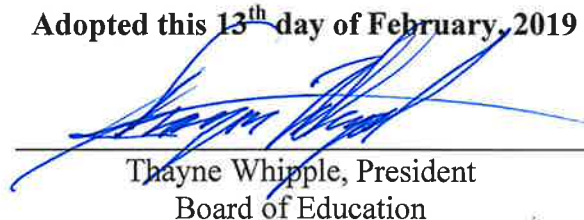 Adopted this 13th day of February, 2019
Thayne Whipple, President
Board of Education